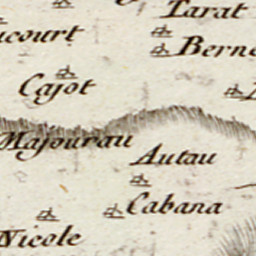 Tarat
icourt
Berne
Cajot
Majourau
Autau
Cabana
Nicole